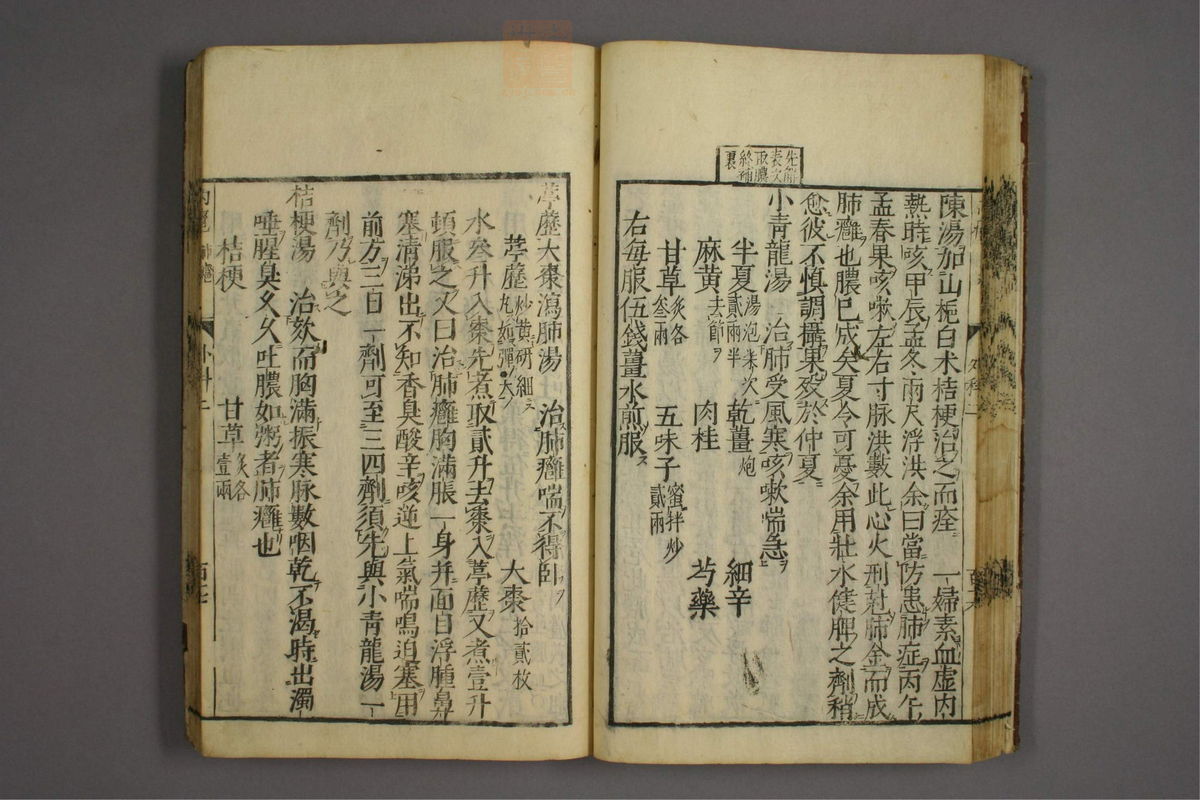 先解
表次
取膿
終補
裏
陳湯加山梔白朮桔梗治之而痊 一婦素血虛内
熱時咳甲辰孟冬兩尺浮洪余曰當防患肺症丙午
孟春果咳嗽左右寸脉洪數此心火刑尅肺金而成
肺癰也膿已成矣夏令可憂余用壯水健脾之劑稍
愈彼不慎調攝果歿於仲夏
小青龍湯 治肺受風寒咳嗽喘急
半夏湯泡柒次貳兩半 乾薑炮 細辛
麻黄去節 肉桂 芍藥
甘草炙各叁兩 五味子蜜拌炒貳兩
右每服伍錢薑水煎服
葶藶大棗瀉肺湯 治肺癰喘不得卧
葶藶炒黄研細丸如彈大 大棗拾貳枚
水叁升入棗先煮取貳升去棗入葶藶又煮壹升
頓服之又曰治肺癰胸滿脹一身并面目浮腫鼻
塞清涕出不知香臭酸辛咳逆上氣喘鳴迫塞用
前方三日一劑可至三四劑須先與小青龍湯一
劑乃與之
桔梗湯 治欬而胸滿振寒脉數咽乾不渴時出濁
唾腥臭久久吐膿如粥者肺癰也
桔梗 甘草炙各壹兩